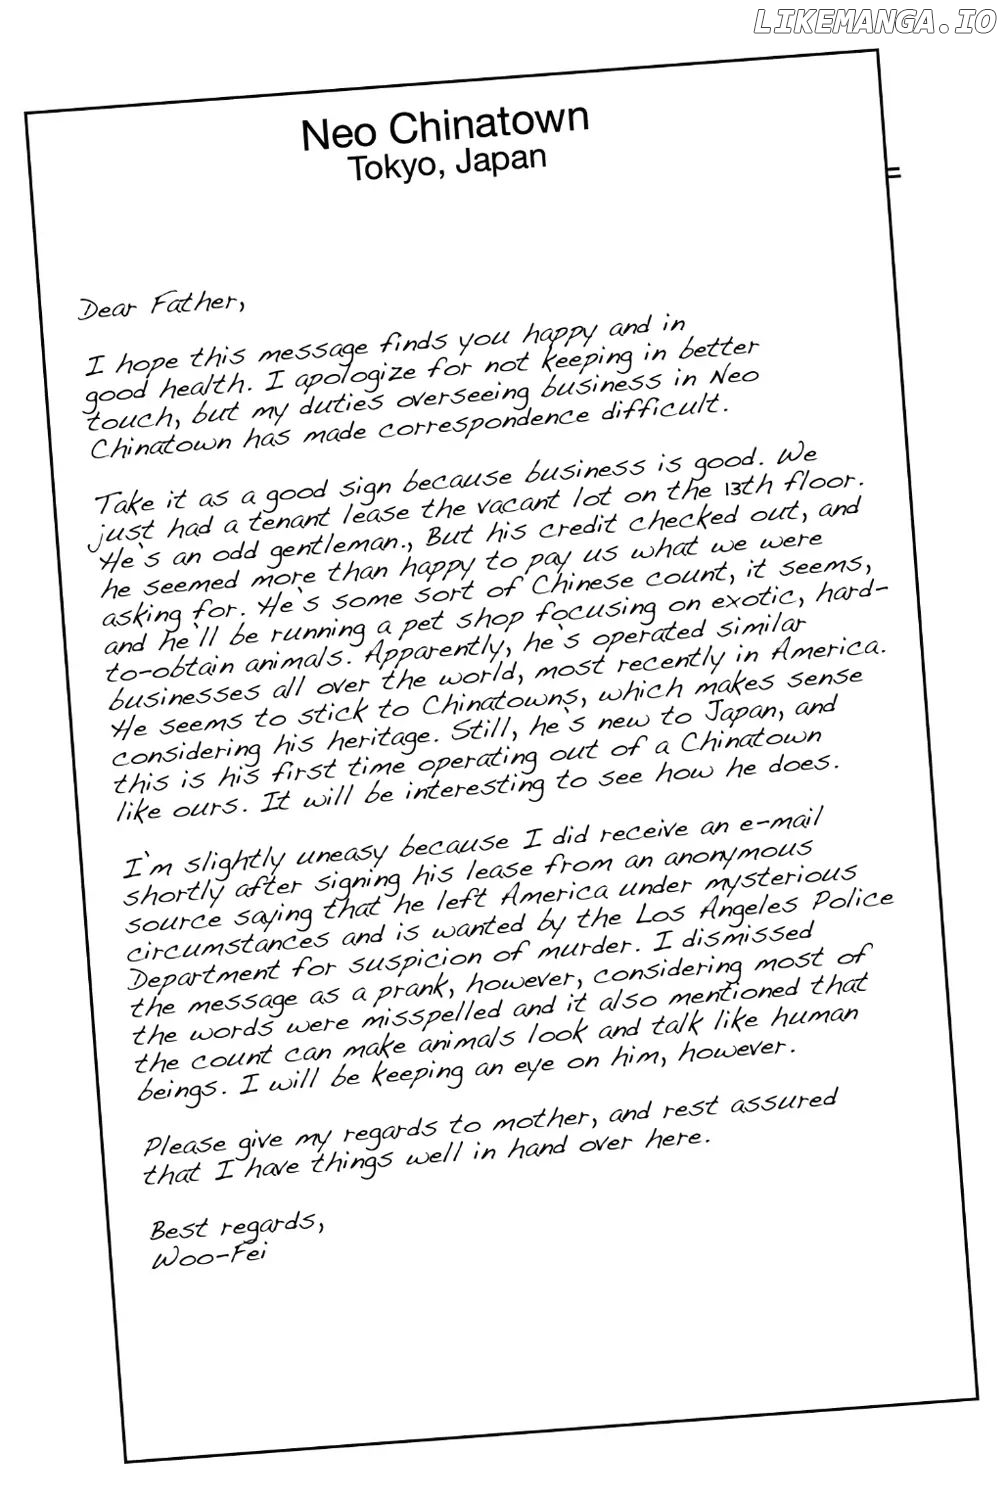 LIKEMANGA.IO
Neo Chinatown
Tokyo, Japan
Dear Father,
I hope this message finds you happy and in
good health. I apologize for not keeping in better
touch, but my duties overseeing business in Neo
Chinatown has made correspondence difficult.
Take it as a good sign because business is good. We
just had a tenant lease the vacant lot on the 13th floor.
He's an odd gentleman., But his credit checked out, and
he seemed more than happy to pay us what we were
asking for. He's some sort of Chinese count, it seems,
and he'll be running a pet shop focusing on exotic, hard-
to-obtain animals. Apparently, he's operated similar
businesses all over the world, most recently in America.
He seems to stick to Chinatowns, which makes sense
considering his heritage. Still, he's new to Japan, and
this is his first time operating out of a Chinatown
like ours. It will be interesting to see how he does.
I'm slightly uneasy because I did receive an e-mail
shortly after signing his lease from an anonymous
source saying that he left America under mysterious
circumstances and is wanted by the Los Angeles Police
Department for suspicion of murder. I dismissed
the message as a prank, however, considering most of
the words were misspelled and it also mentioned that
the count can make animals look and talk like human
beings. I will be keeping an eye on him, however.
Please give my regards to mother, and rest assured
that I have things well in hand over here.
Best regards,
Woo-Fei